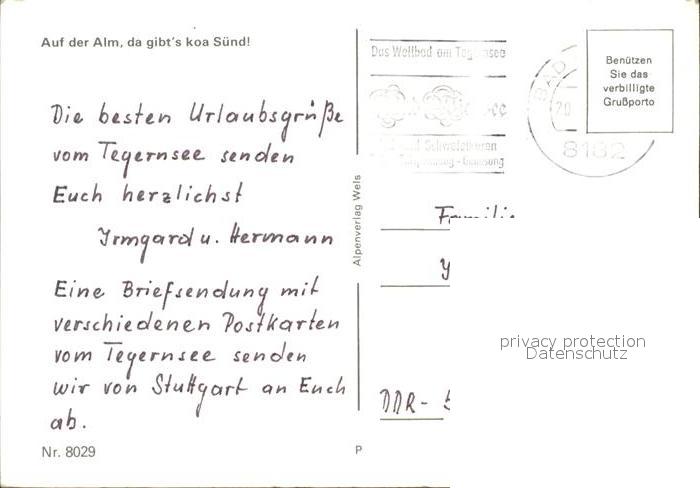 Auf der Alm, da gibt's koa Sünd!
Das Weltbad am Tegernsee
BAD
20
8182
Benützen
Sie das
verbilligte
Grußporto
Die besten Urlaubsgrüße
vom Tegernsee senden
Euch herzlichst
Irmgard u. Hermann
Eine Briefsendung mit
verschiedenen Postkarten
vom Tegernsee senden
wir von Stuttgart an Euch
ab.
Nr. 8029
Alpenverlag Wels
P
Familie
DDR-
privacy protection
Datenschutz